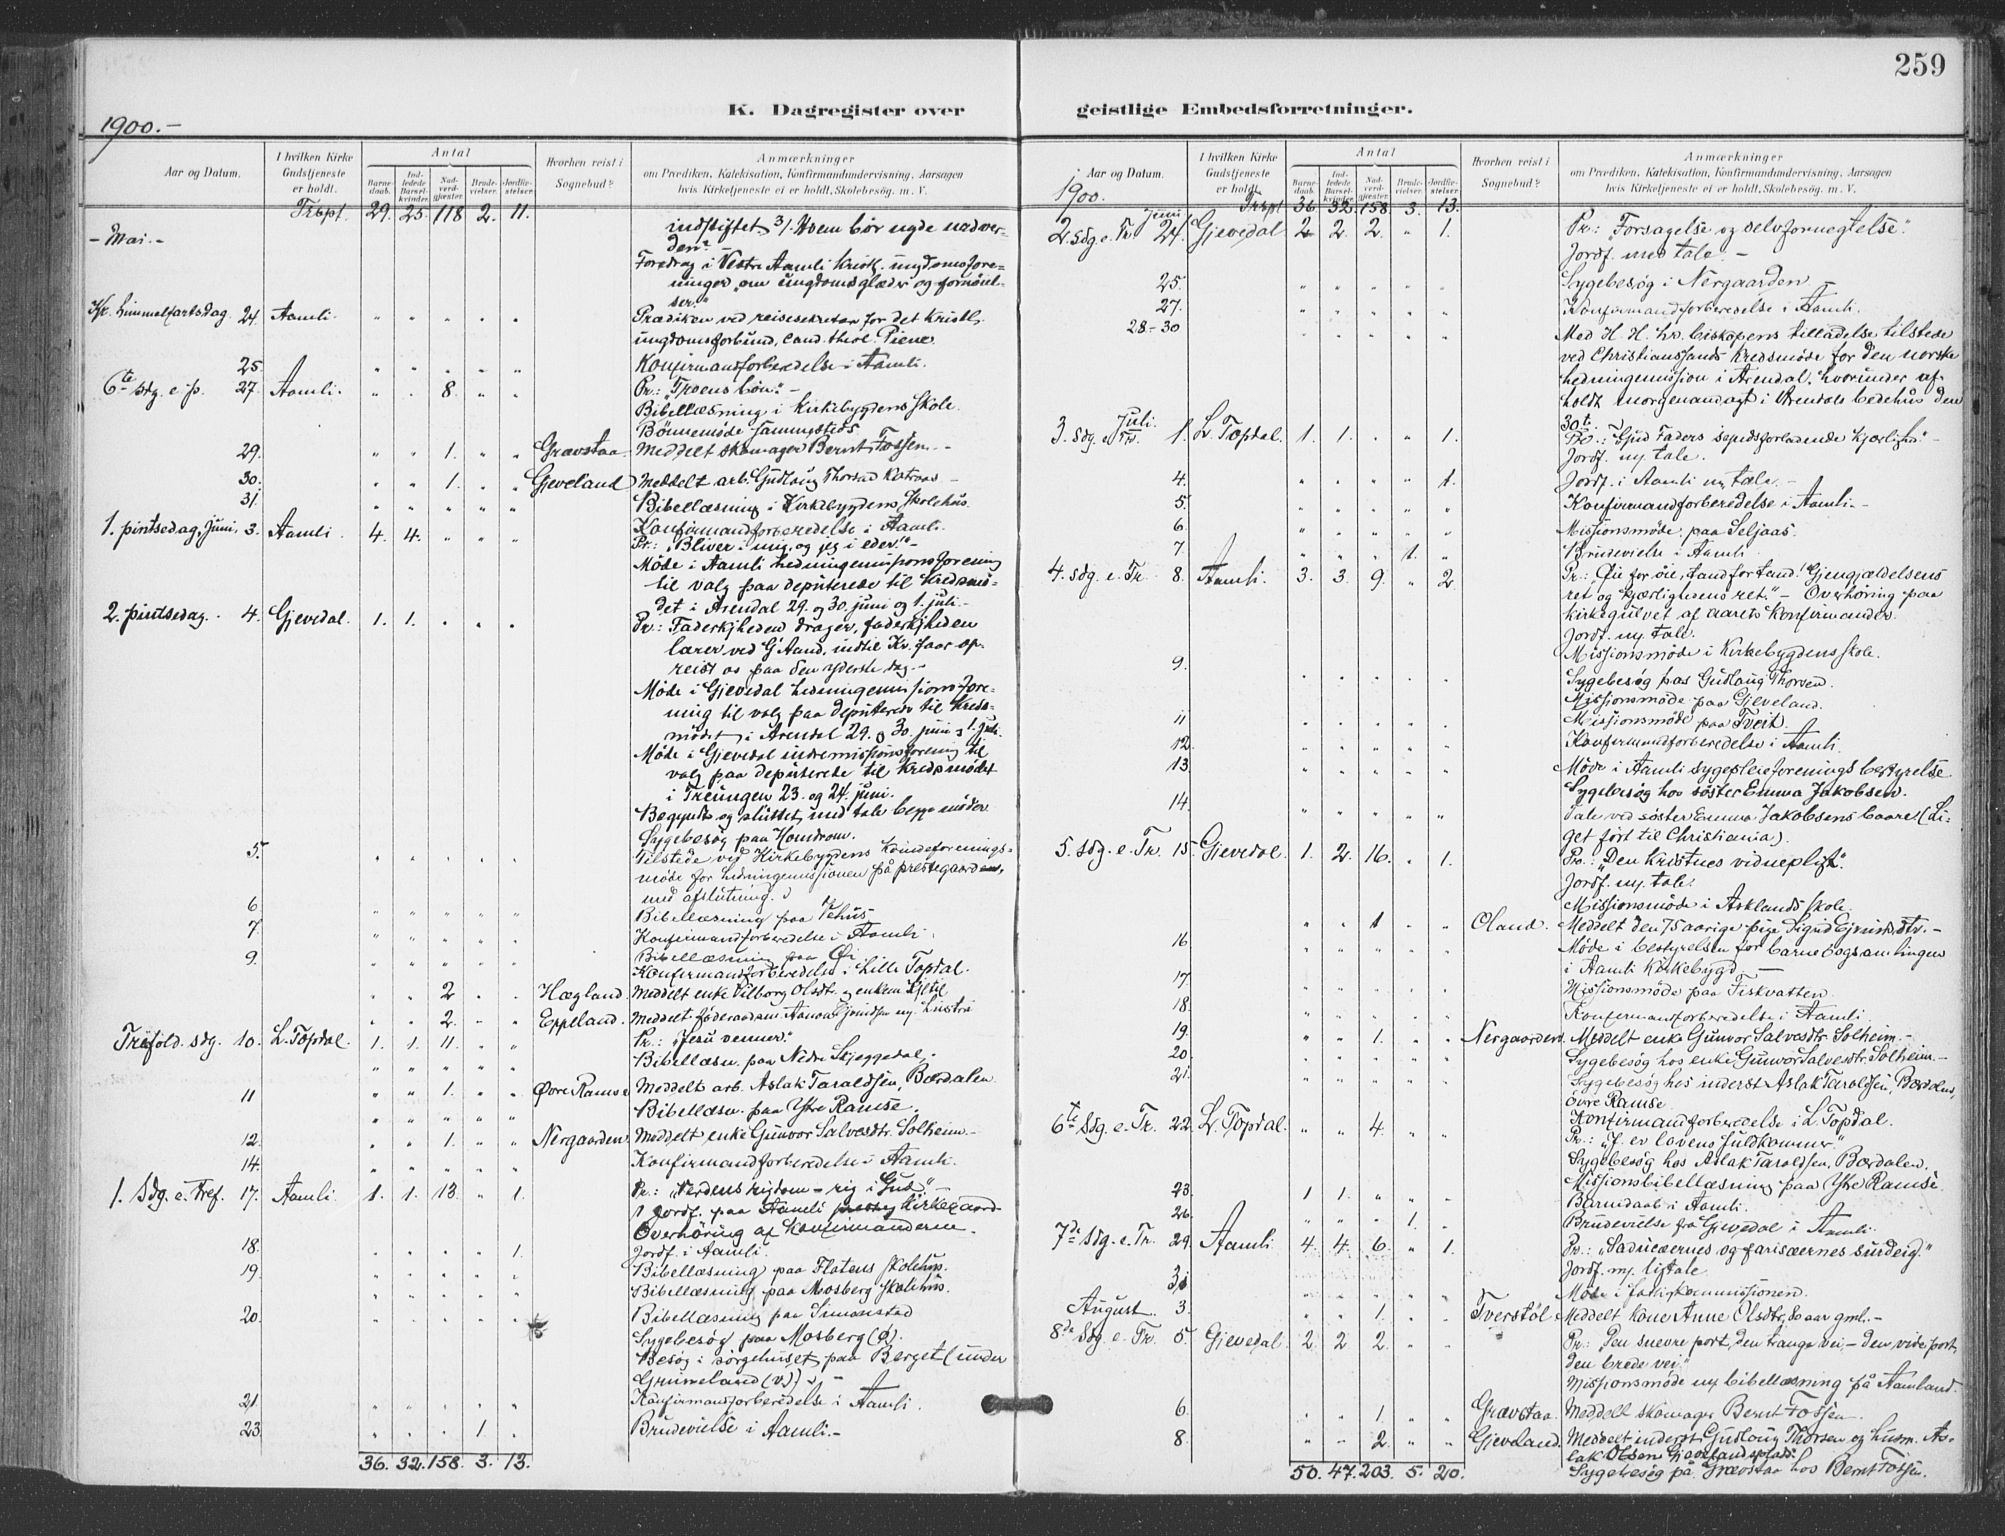 259
K. Dagregister over
geistlige Embedsforretninger.
1900.-
Aar og Datum.
I hvilken Kirke Gudstjeneste er holdt.
Antal
Barnedaab.
Indledede Barselkvinder.
Nadverdgjester.
Brudevielser.
Jordfæstelser.
Hvorhen reist i Sognebud?
Anmærkninger
om Prædiken, Katekisation, Konfirmandundervisning, Aarsagen
hvis Kirketjeneste ei er holdt, Skolebesøg. m. V.
Trspt. 29. 25. 118. 2. 11.
indstiftet. 3/. Hvem bør nyde nadver-
- Mai.-
den?
Foredrag i Vestre Aamli kristl. ungdomsfore-
ninger „om ungdomsglæder og fornöiel-
ser."
Kr. himmelfartsdag. 24. Aamli. " " " " " Prædiken ved reisesekretær for det kristl.
ungdomsforbund, cand. theol. Piene.
25. " " " " " Konfirmandforberedelse i Aamli.
6te sdg. e. p. 27. Aamli. " " 8. " " Pr.: „Troens bön." -
Bibellæsning i Kirkebygdens skole.
Bönnemøde sammesteds.
29. " " 1. " " Grævstaa. Meddelt skomager Bernt Fossen. -
30. " " 1. " " Gjeveland Meddelt arb. Gudloug Thorsen
31. " " " " " Bibellæsning i Kirkebygdens skolehus.
Konfirmandforberedelse i Aamli.
1. pintsedag, juni. 3. Aamli. 4. 4. " " " Pr.: „Bliver i mig, og jeg i eder." -
Møde i Aamli hedningemissionsforening
til valg paa deputerede til kredsmö-
det i Arendal 29. og 30. juni og 1. juli. -
2. pintsedag. 4. Gjevedal. 1. 1. " " " Pr.: Faderkjheden drager, faderkjheden
lærer ved G. Aand, indtil Kr. faar op-
reist os paa den yderste dag. -
Møde i Gjevedal hedningemissionsfore-
ning til valg paa deputerede til kreds-
mödet i Arendal 29. og 30. juni og 1. juli.
Møde i Gjevedal indremissionsforening til
valg paa deputerede til kredsmödet
i Treungen 23. og 24. juni.
Begyndt og sluttet med tale begge möder.
Sygebesøg paa Homdrom.
5. " " " " " Tilstede ved Kirkebygdens kvindeforenings-
møde for hedningemissionen på prestegaarden,
med afslutning.
6. " " " " " Bibellæsning paa Vehus.
7. " " " " " Konfirmandforberedelse i Aamli.
Bibellæsning paa Øi.
9. " " " " " Konfirmandforberedelse i Lille Topdal.
" " 2. " " Hægland. Meddelt enke Vilborg Olsdt. og enkem. Kjetil
" " 2. " " Eppeland. Meddelt föderaadsm.
Trefold. sdg. 10. L. Topdal. 1. 1. 11. " " Pr.: „Jesu venner."
" " " " " Bibellæsn. paa Nedre Skjeggedal.
11 " " 1. " " Øvre Ramse Meddelt arb. Aslak Taraldsen, Bærdalen.
" " " " " Bibellæsn. paa Ytre Ramse.
12. " " 1. " " Nergaarden. Meddelt enke Gunvor Salvesdtr. Solheim. -
14. " " " " " Konfirmandforberedelse i Aamli.
1. Sdg. e. Tref. 17. Aamli. 1. 1. 13. " 1. Pr.: „Verdens rigdom - rig i Gud." -
1 Jordf. paa Aamli kirkegaard
Overhöring af konfirmanderne.
18. " " " " 1. Jordf. i Aamli.
19. " " " " " Bibellæsning paa Flatens skolehus.
" " " " " Bibellæsning paa Mosberg skolehus.
20. " " " " " Bibellæsning paa Simonstad
Sygebesög paa Mosberg (ö).
Besög i sørgehuset paa Berget (under
Grimeland (v)). -
21. " " " " " Konfirmandforberedelse i Aamli.
23. " " " 1. " Brudevielse i Aamli. -
36. 32. 158. 3. 13.
Aar og Datum.
I hvilken Kirke Gudstjeneste er holdt.
Antal
Barnedaab.
Indledede Barselkvinder.
Nadverdgjester.
Brudevielser.
Jordfæstelser.
Hvorhen reist i Sognebud?
Anmærkninger
om Prædiken, Katekisation, Konfirmandundervisning, Aarsagen
hvis Kirketjeneste ei er holdt, Skolebesøg. m. V.
1900.
Trspt 36. 32. 158. 3. 13.
2. sdg. e. Tr. Juni 24. Gjevedal 2. 2. 2. " 1. Pr.: „Forsagelse og selvfornegtelse."
Jordf. med tale. -
25. " " " " " Sygebesøg i Nergaarden
27. " " " " " Konfirmandforberedelse i Aamli.
28-30 " " " " " Med H. H. hr. biskopens tilladelse tilstede
ved Christianssands kredsmöde for den norske
hedningemission i Arendal, hvorunder af-
holdt morgenandagt i Arendals bedehus den
30te.
Juli.
3. sdg. e. Tr. 1. L. Topdal. 1. 1. " " 1. Pr.: „Gud Faders kjærlighed." -
Jordf. m. tale.
4. " " " " 1. Jordf. i Aamli m. tale. -
5. " " " " " Konfirmandforberedelse i Aamli. -
6. " " " " " Missionsmøde paa Seljaas.
7. " " " 1. " Brudevielse i Aamli.
4. sdg. e. Tr. 8. Aamli. 3. 3. 9. " 2. Pr.: Øie for öie, tand for tand! Gjengjældelsens
ret og kjærlighedens ret." - Overhöring paa
kirkegulvet af aarets konfirmander.
Jordf. m. tale.
Missionsmøde i Kirkebygdens skole.
9. " " " " " Sygebesøg hos Gudloug Thorsen.
Missionsmøde paa Gjeveland.
11 " " " " " Missionsmøde paa Tveit.
12. " " " " " Konfirmandforberedelse i Aamli.
13. " " " " " Møde i Aamli sygepleieforenings bestyrelse
Sygebesøg hos söster Emma Jakobsen.
14. " " " " " Tale ved söster Emma Jakobsens baare (Li-
get fört til Christiania).
5. sdg. e. Tr. 15. Gjevedal. 1. 2. 16. " 1. Pr.: „Den kristnes vidnepligt."
Jordf. m. tale.
Missionsmøde i Asklands skole.
" " 1 " " Oland. Meddelt den 75 aarige pige Sigrid
16. " " " " " Møde i bestyrelsen for barnebogsamlingen
i Aamli kirkebygd. -
17. " " " " " Missionsmøde paa Fiskvatten.
18. " " " " " Konfirmandforberedelse i Aamli.
19. " " 1. " " Nergaarden. Meddelt enke Gunvor Salvesdtr. Solheim. -
20. " " " " " Sygebesøg hos enke Gunvor Salvesdtr. Solheim. -
21. " " " " " Sygebesøg hos inderst Aslak Taraldsen, Bærdalen,
övre Ramse
Konfirmandforberedelse i L. Topdal.
6te sdg. e. Tr. 22. L. Topdal. " " 4. " " Pr.: „J. er lovens fuldkommer"
Sygebesøg hos Aslak Taraldsen, Bærdalen.
Missionsbibellæsning paa Ytre Ramse.
23. 1 1. " " " Barnedaab i Aamli.
26. " " " 1. " Brudevielse fra Gjevedal i Aamli.
7de sdg. e. Tr. 29. Aamli. 4. 4. 6. " 1. Pr.: „Saducæernes og farisæernes surdeig."
Jordf. m. ligtale.
31 " " " " " Møde i fattigkommissionen.
August. 3. " " 1. " " Tverstöl. Meddelt kone Anne Olsdtr., 80 aar gml. -
8de sdg. e. Tr. 5. Gjevedal. 2. 2 2. " " Pr.: Den snevre port, den trange vei, - den vide port,
den brede vei."
Missionsmøde m. bibellæsning på Aamland.
6. " " 1. " " Grævstaa. Meddelt skomager Bernt Fossen.
8. " " 2. " " Gjeveland. Meddelt inderst Gudloug Thorsen og husm. As-
lak Olsen, Gjevelandsplads.
Sygebesög på Grævstaa hos Bernt Fossen.
50. 47. 203. 5. 20.